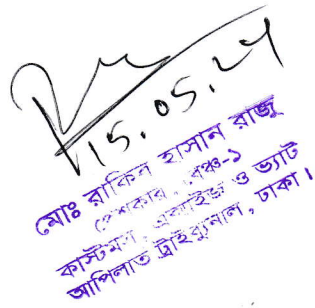 15.05.24
মোঃ রাকিন হাসান রাজু
পেশকার, বেঞ্চ-১
কাস্টমস, এক্সাইজ ও ভ্যাট
আপিলাত ট্রাইব্যুনাল, ঢাকা।